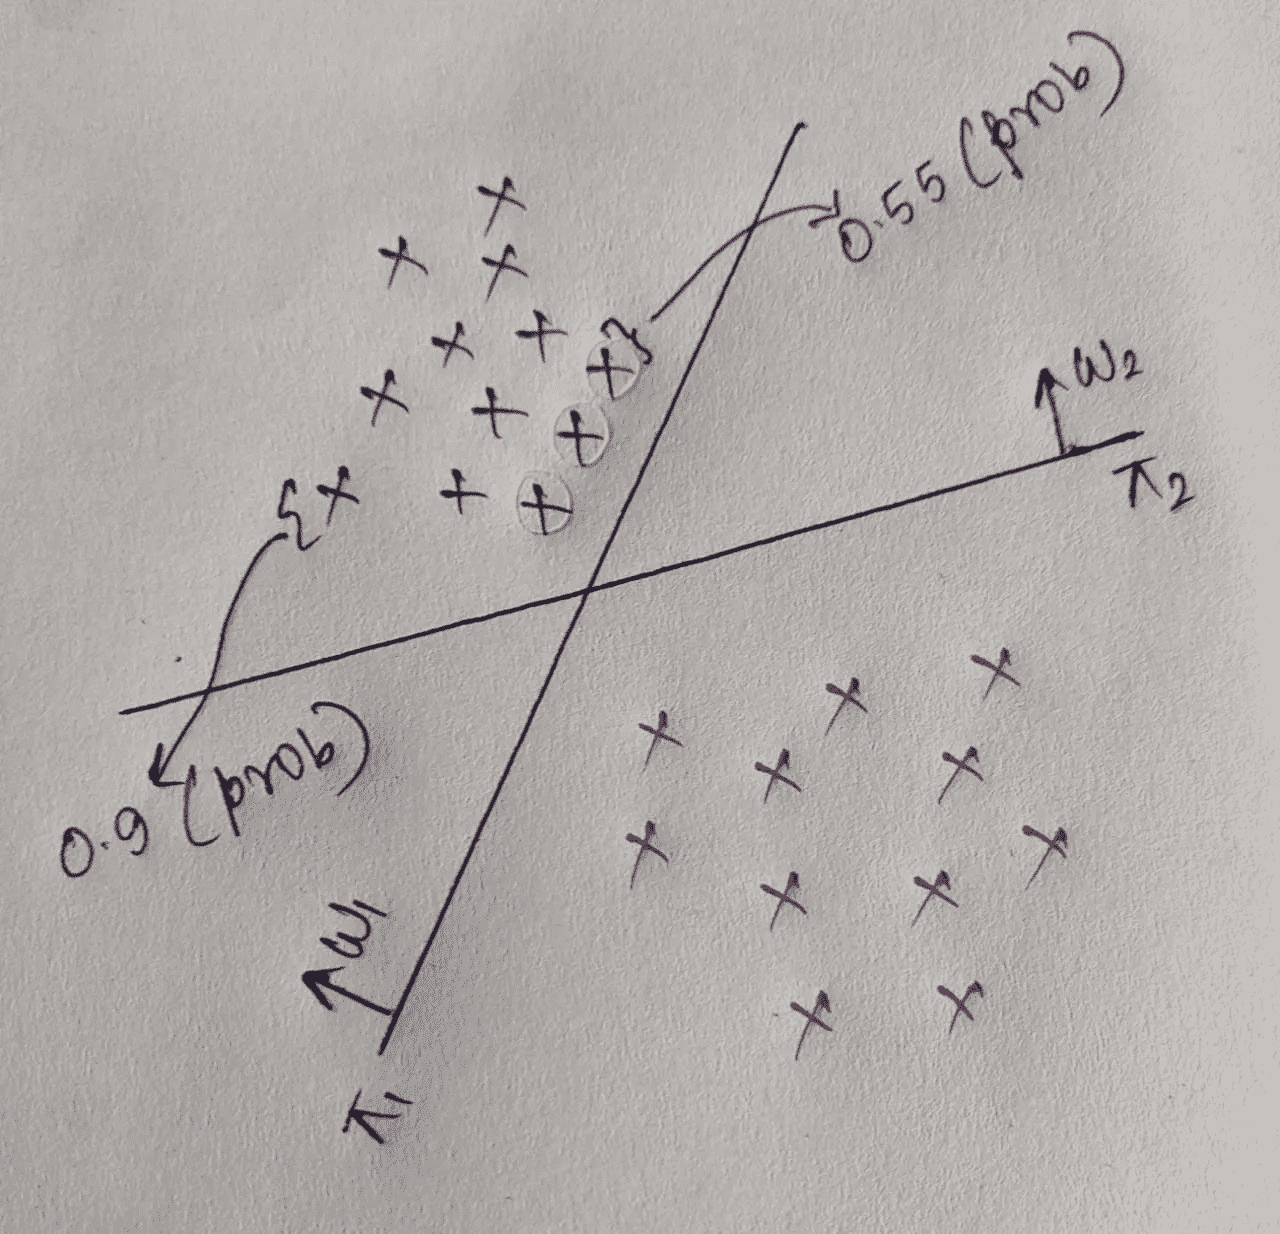 0.55 (prob)
W2
π2
0.9 (prob)
W1
π1